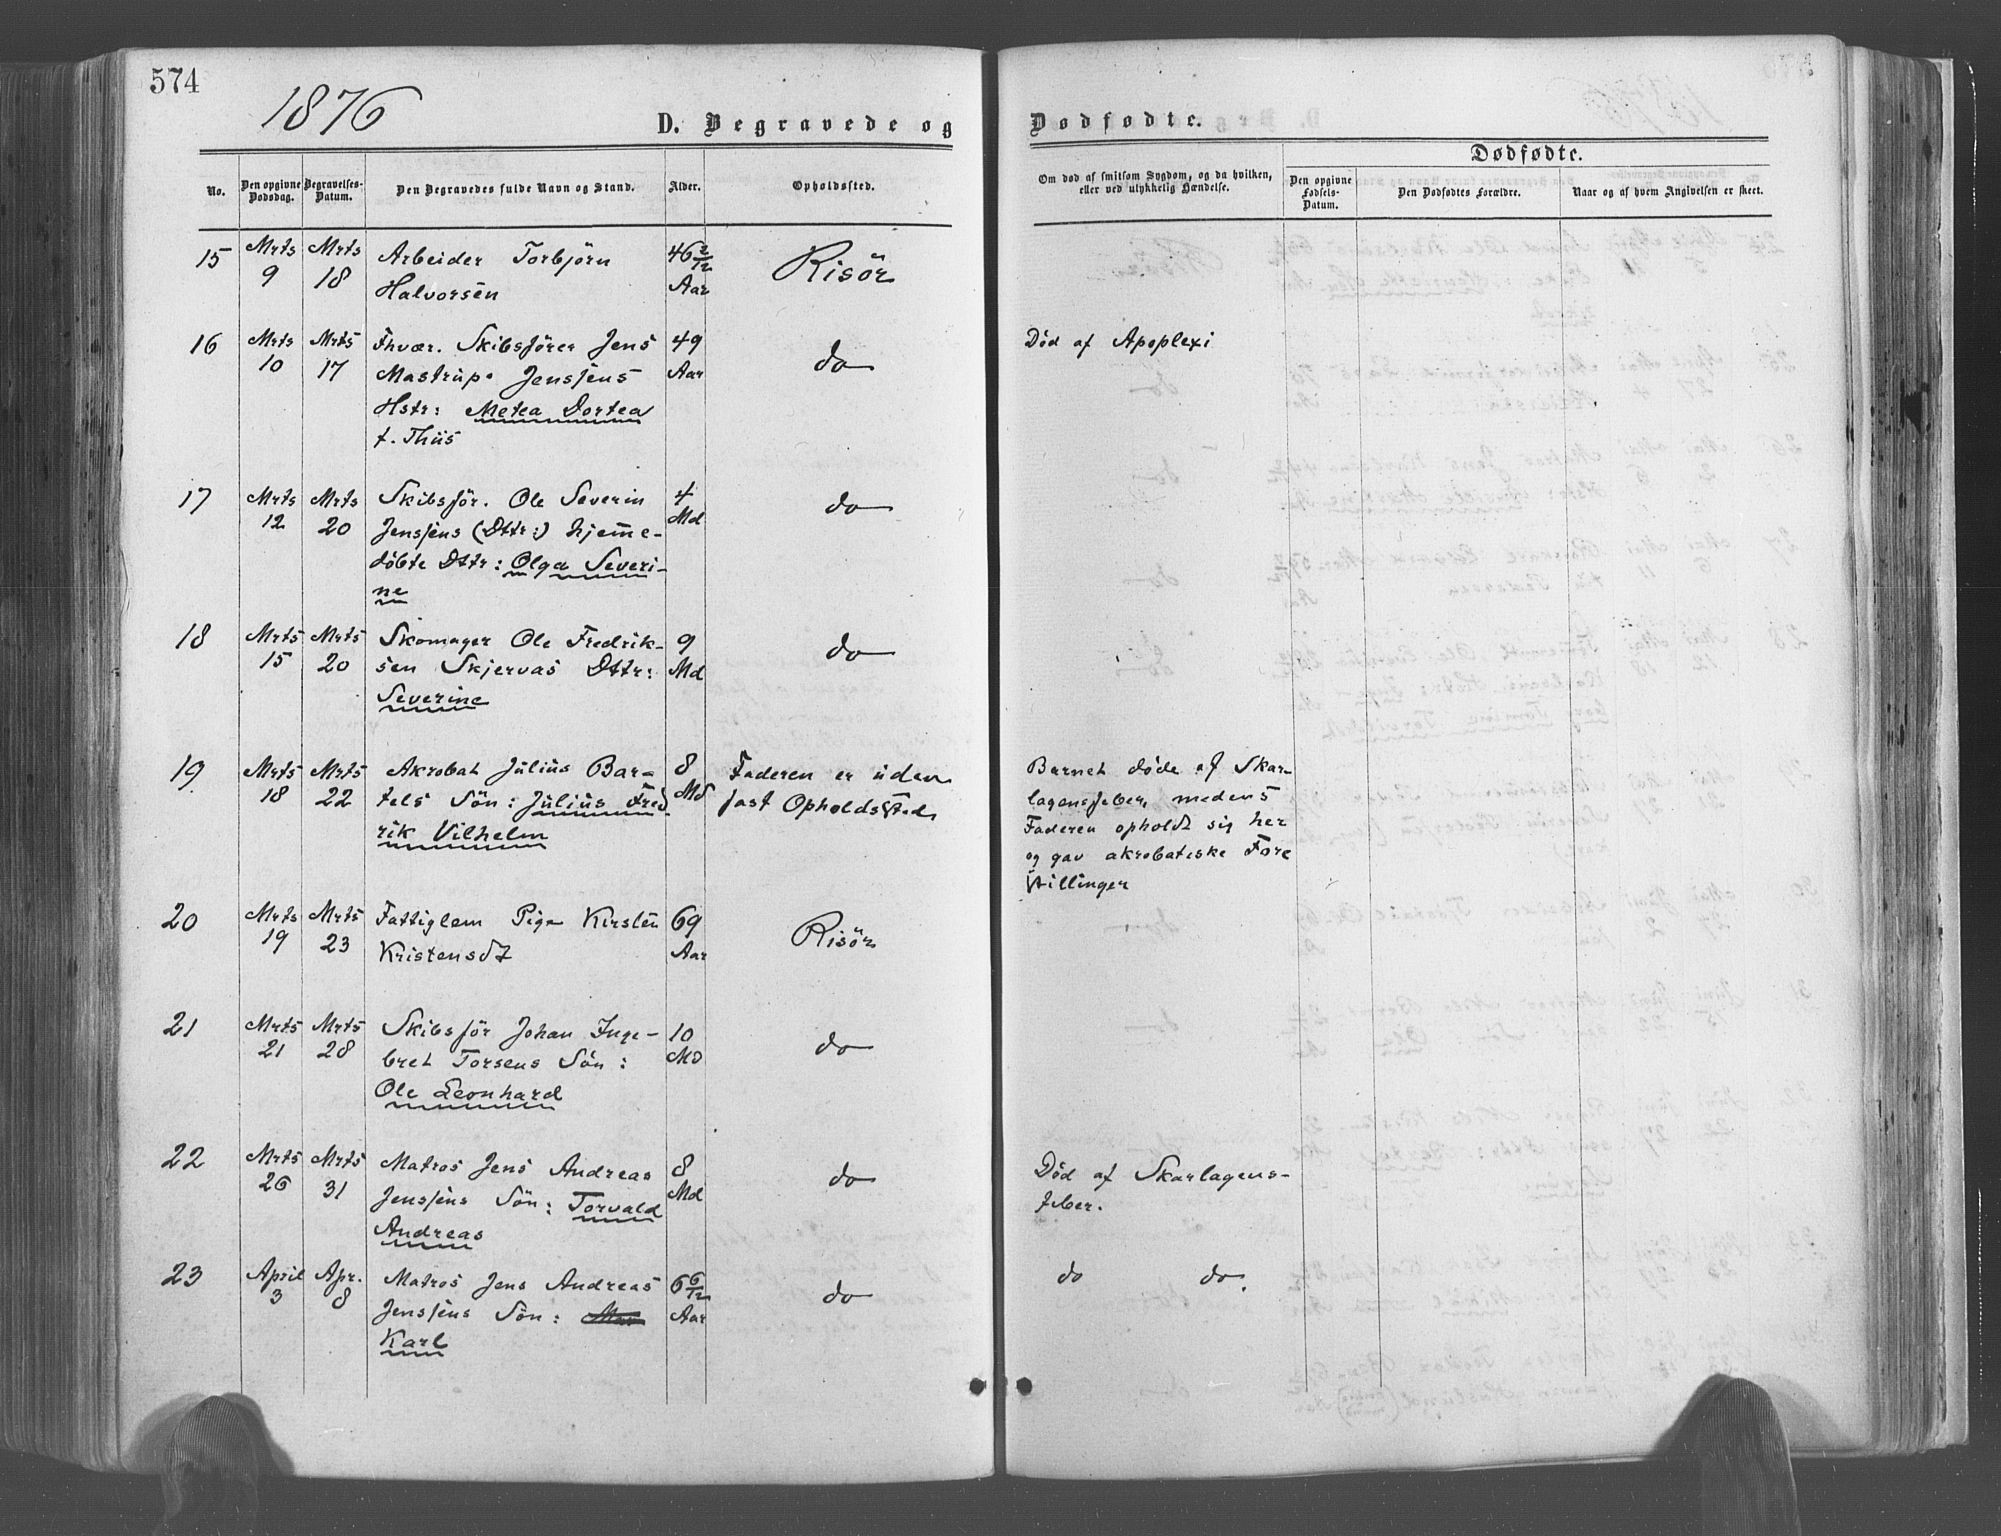 574
1876
D. Begravede og Dødfødte.
No.
Den opgivne Dødsdag.
Begravelses-Datum.
Den Begravedes fulde Navn og Stand.
Alder.
Opholdssted.
Om død af smitsom Sygdom, og da hvilken, eller ved ulykkelig Hændelse.
Dødfødte.
Den opgivne Fødsels-Datum.
Den Dødfødtes Forældre.
Naar og af hvem Angivelsen er skeet.
15
Mrts 9
Mrts 18
Arbeider Torbjørn
Halvorsen
46 2/12
Aar
Risör
16
Mrts 10
Mrts 17
Fhvær. Skibsfører Jens
Mastrup Jenssens
Hstr: Metea Dortea
f. Thiis
49
Aar
do
Død af Apoplexi
17
Mrts 12
Mrts 20
Skibsför. Ole Severin
Jenssens (Dttr:) hjemme-
döbte Dttr: Olga Severi-
ne
4
Md
do
18
Mrts 15
Mrts 20
Skomager Ole Fredrik-
sen Skjervas Dttr:
Severine
9
Md
do
19
Mrts 18
Mrts 22
Akrobat Julius Bar-
tels Sön: Julius Fred
rik Vilhelm
8
Md
Faderen er uden
fast Opholdssted
Barnet döde af Skar-
lagensfeber, medens
Faderen opholdt sig her
og gav akrobatiske Fore
stillinger
20
Mrts 19
Mrts 23
Fattiglem Pige Kirsten
Kristensdt
69
Aar
Risör
21
Mrts 21
Mrts 28
Skibsför Johan Inge-
bret Torsens Sön:
Ole Leonhard
10
Md
do
22
Mrts 26
Mrts 31
Matros Jens Andreas
Jenssens Sön: Torvald
Andreas
8
Md
do
Död af Skarlagens-
feber.
23
April 3
Apr. 8
Matros Jens Andreas
Jenssens Sön:
Karl
6 6/12
Aar
do
do do.